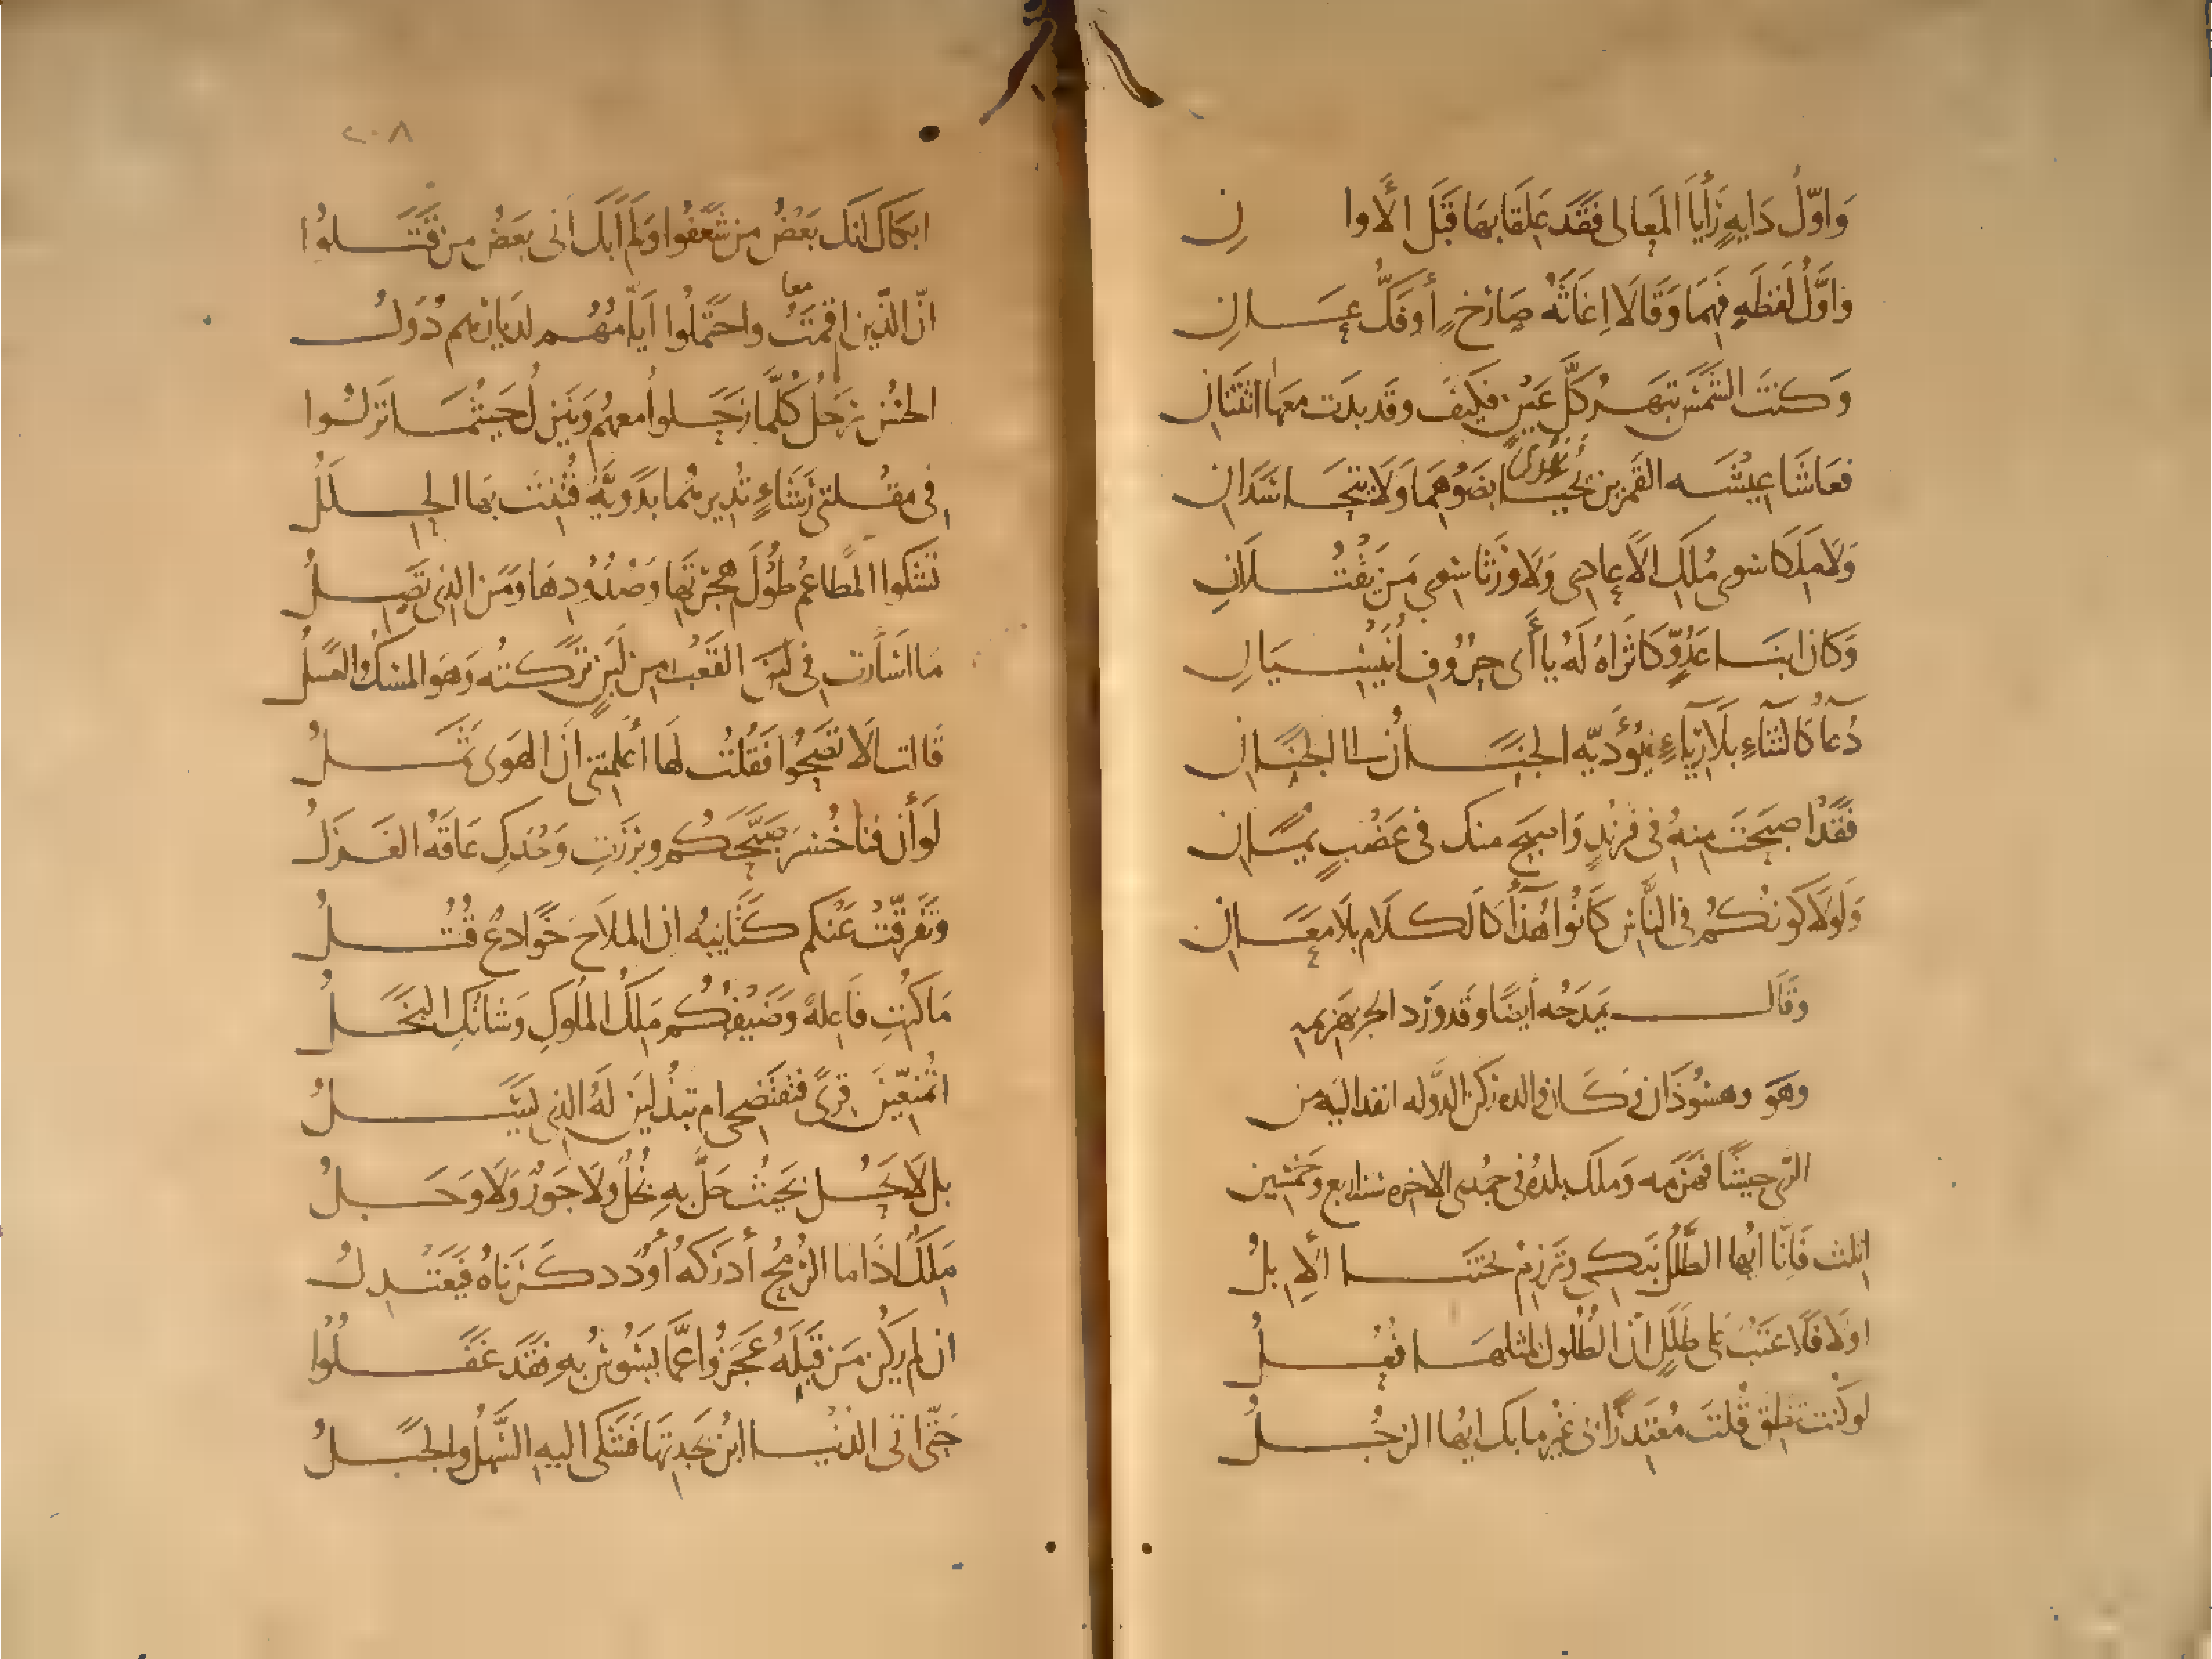 وَاوّلُ دَايهٍ رَأَيَا المَعَالى فَقَد عَلِقَا بهَا قَبلَ الأَوا نِ
وَاوَّلُ لَفظَهٍ فَهِمَا وَقَالَا اِغَاثَهُ صَارِخٍ أَو فَكُّ عَـانِ
وَكنتَ الشَّمسَ تَبهَـرُ كلَّ عَينٍ فكَيفَ وقَد بدَت معَهَا اثنَتَانِ
فعَاشَا عِيشَـه القَمَرينِ يُحيَـا بضَوئهمَا وَلَا يتحَـاسَدَانِ
وَلَا مَلَكَا سوى مُلكِ الأَعادى وَلَا وَرثَا سِوى مَن يَقتُـلَانِ
وَكَانَ ابنَـا عَدُوٍّ كَاثَرَاهُ لَهُ يَاأَى حرُوفِ أُنَيسِـيَانِ
دُعآءٌ كالثناءِ بلَا رِيَاءٍ يُؤَدّيه الجنَـانُ الى الجنَـانِ
فَقَد اصبَحتَ منهُ فى فرِندٍ وَاصبَح منكَ فى عَضبٍ يمَـانِ
وَلَولَا كَونكُم فى النَّاسِ كَانُوا هُذَآءً كالكـلَام بلَا معَـانِ
وقَالــ يَمدَحُه أَيضًا وقَد وَرَد الخبَر بهَزيمه
وهوَ وهسُوذَان وكَـان والده ركن الدَّوله انفد اليه من
الرّى جيشًا فهَزَمه وَملَك بلدهُ فى جُمدى الاخره سنه اربع وخمسين
اثلِث فَاِنَّا ايُّها الطَّلَلُ نَبكـى وتُرزِمُ تحتَنـا الأِبِلُ
اولَا فلَا عَتبٌ على طَلَلٍ اِنَّ الطُّلُولَ لمثلهَـا فُعُـلُ
لو كنتَ تنطِق قُلتَ مُعتَذِرًا بى غَيرُ ما بك ايُّها الرجُـلُ
٢٠٨
ابكَاكَ اَنّكَ بَعضُ من شَعَفُوا وَلَم أَبكِ أَنى بَعضُ من قَتَـلُوا
انّ الذَّين اقَمتَُ واحتَمَلُوا اَيَّامُهُـم لديَارِهم دُوَلُ
معا
الحسُن يَرحلُ كُلَّمَا رَحَـلوا معهُم وَيَنزلُ حَيثُمَـا نَزلُـوا
فى مقُـلتى رَشَاءٍ تُديرهُمَا بدَويَّهٌ فُتِنَت بهَا الحِـلَلُ
تَشكُوا المَطَاعمُ طُولَ هجرَتهَا وَصُدُودِهَا وَمَن الذى تَصِـلُ
مَا اَسأَرَت فى القَعبِ من لَبَنٍ تَرَكـتُه وَهوَ المسكُ والعَسَلُ
قَالت اَلَا تَصحُوا فَقُلتُ لهَا أَعلَمتِنى أَنّ الهَوى ثَمَـلُ
لَو أَن فنَاخُسرَ صَبَّحَكُـم وبَرَزتِ وَحدَكِ عَاقَهُ الغَـزَلُ
وتَفَرَّقَت عَنكم كتَايبهُ ان الملَاحَ خَوَادعٌ قُتُـلُ
مَا كنُتِ فَاعِلهً وَضَيفكُـم مَلِكُ المُلُوكِ وَشَأنُكِ البَخَـلُ
اتُمَنّعِينَ قِرًى فتَفتَضحِى ام تبذُلينَ لَهُ الذى يَسَـلُ
بل لَا يَحُـلُ بحَيثُ حَلَّ بهِ بُخلٌ ولَا جَورٌ وَلَا وَجَـلُ
مَلِكٌ اذَا ما الرُمحُ أَدرَكَهُ أَوَدٌ ذكَـرنَاهُ فَيَعتَـدِلُ
ان لم يَكُن مَن قَبلَهُ عَجَزُوا عَمَّا يَسُوسُ بهِ فقَد غَفَـلُوا
حَتّى اتى الدُنيـا ابنُ بجدتهَا فَشَكى اليهِ السَّهلُ والجَبَـلُ